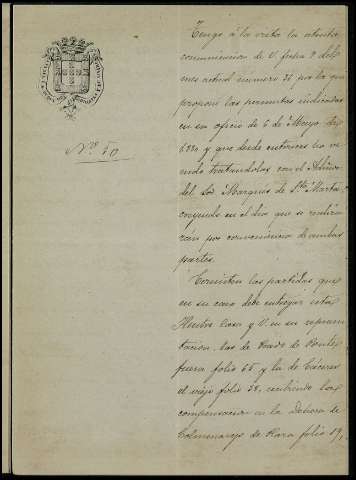 Nº 50
Tengo á la vista la atenta
comunicacion de V. fecha 9 del
mes actual número 36 por la que
propone las permutas indicadas
en su oficio de 6 de Mayo de
1880 y que desde entonces ha ve
nido tratandolas con el Admor
del Sor. Marqués de Sta. Marta
en el dia que se realiza
ran por conveniencia de ambas
partes.
las partidas que
en su caso debe entregar esta
Ilustre Casa y V. en su represen
tacion, las de Prado de
folio 65 y la de Cáceres
el viejo folio 38, recibiendo las
compensacion en la Dehesa de
Colmenarejo de folio 19,